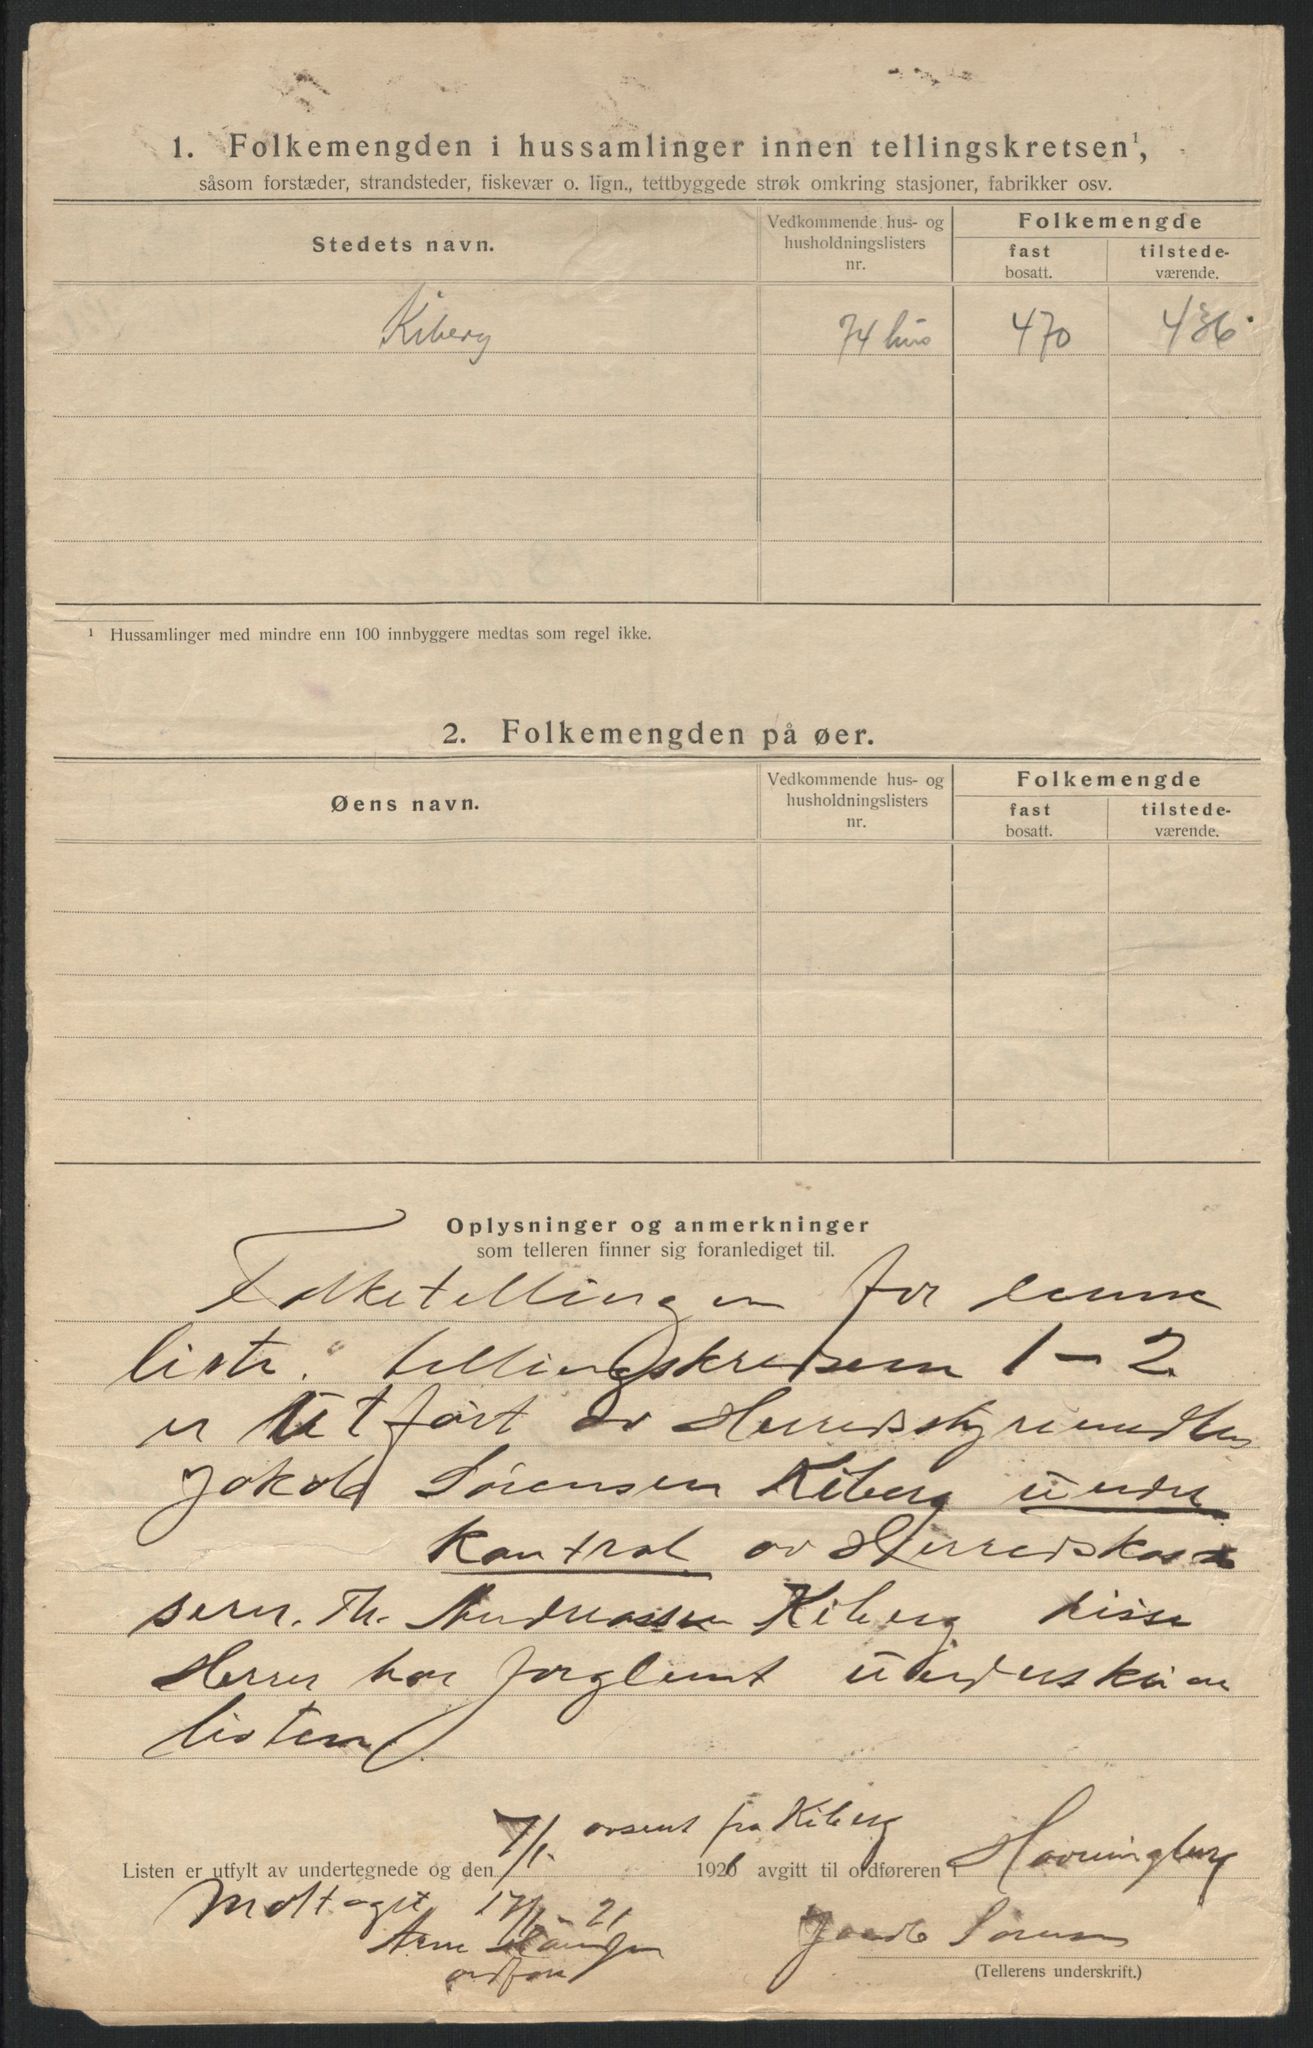 1. Folkemengden i hussamlinger innen tellingskretsen¹,
såsom forstæder, strandsteder, fiskevær o. lign., tettbyggede strøk omkring stasjoner, fabrikker osv.
Stedets navn.
Vedkommende hus- og husholdningslisters nr.
Folkemengde
fast bosatt.
tilstede-værende.
Kiberg 74 hus 470 436
¹ Hussamlinger med mindre enn 100 innbyggere medtas som regel ikke.
2. Folkemengden på øer.
Øens navn.
Vedkommende hus- og husholdningslisters nr.
Folkemengde
fast bosatt.
tilstede-værende.
Oplysninger og anmerkninger
som telleren finner sig foranlediget til.
Folketellingen for denne
liste. tellingskredsen 1-2
er utført av Herredsstyremedlem
Jakob Sørensen Kiberg under
kontrol av Herredskas
serer. Th. Andreassen Kiberg disse
Herrer har forglemt underskrive
listen
7/1. avsent fra Kiberg
Listen er utfylt av undertegnede og den 1921 avgitt til ordføreren i Havningberg
Mottaget 17/1-21
Arne
ordfører
Jacob Sørensen
(Tellerens underskrift.)